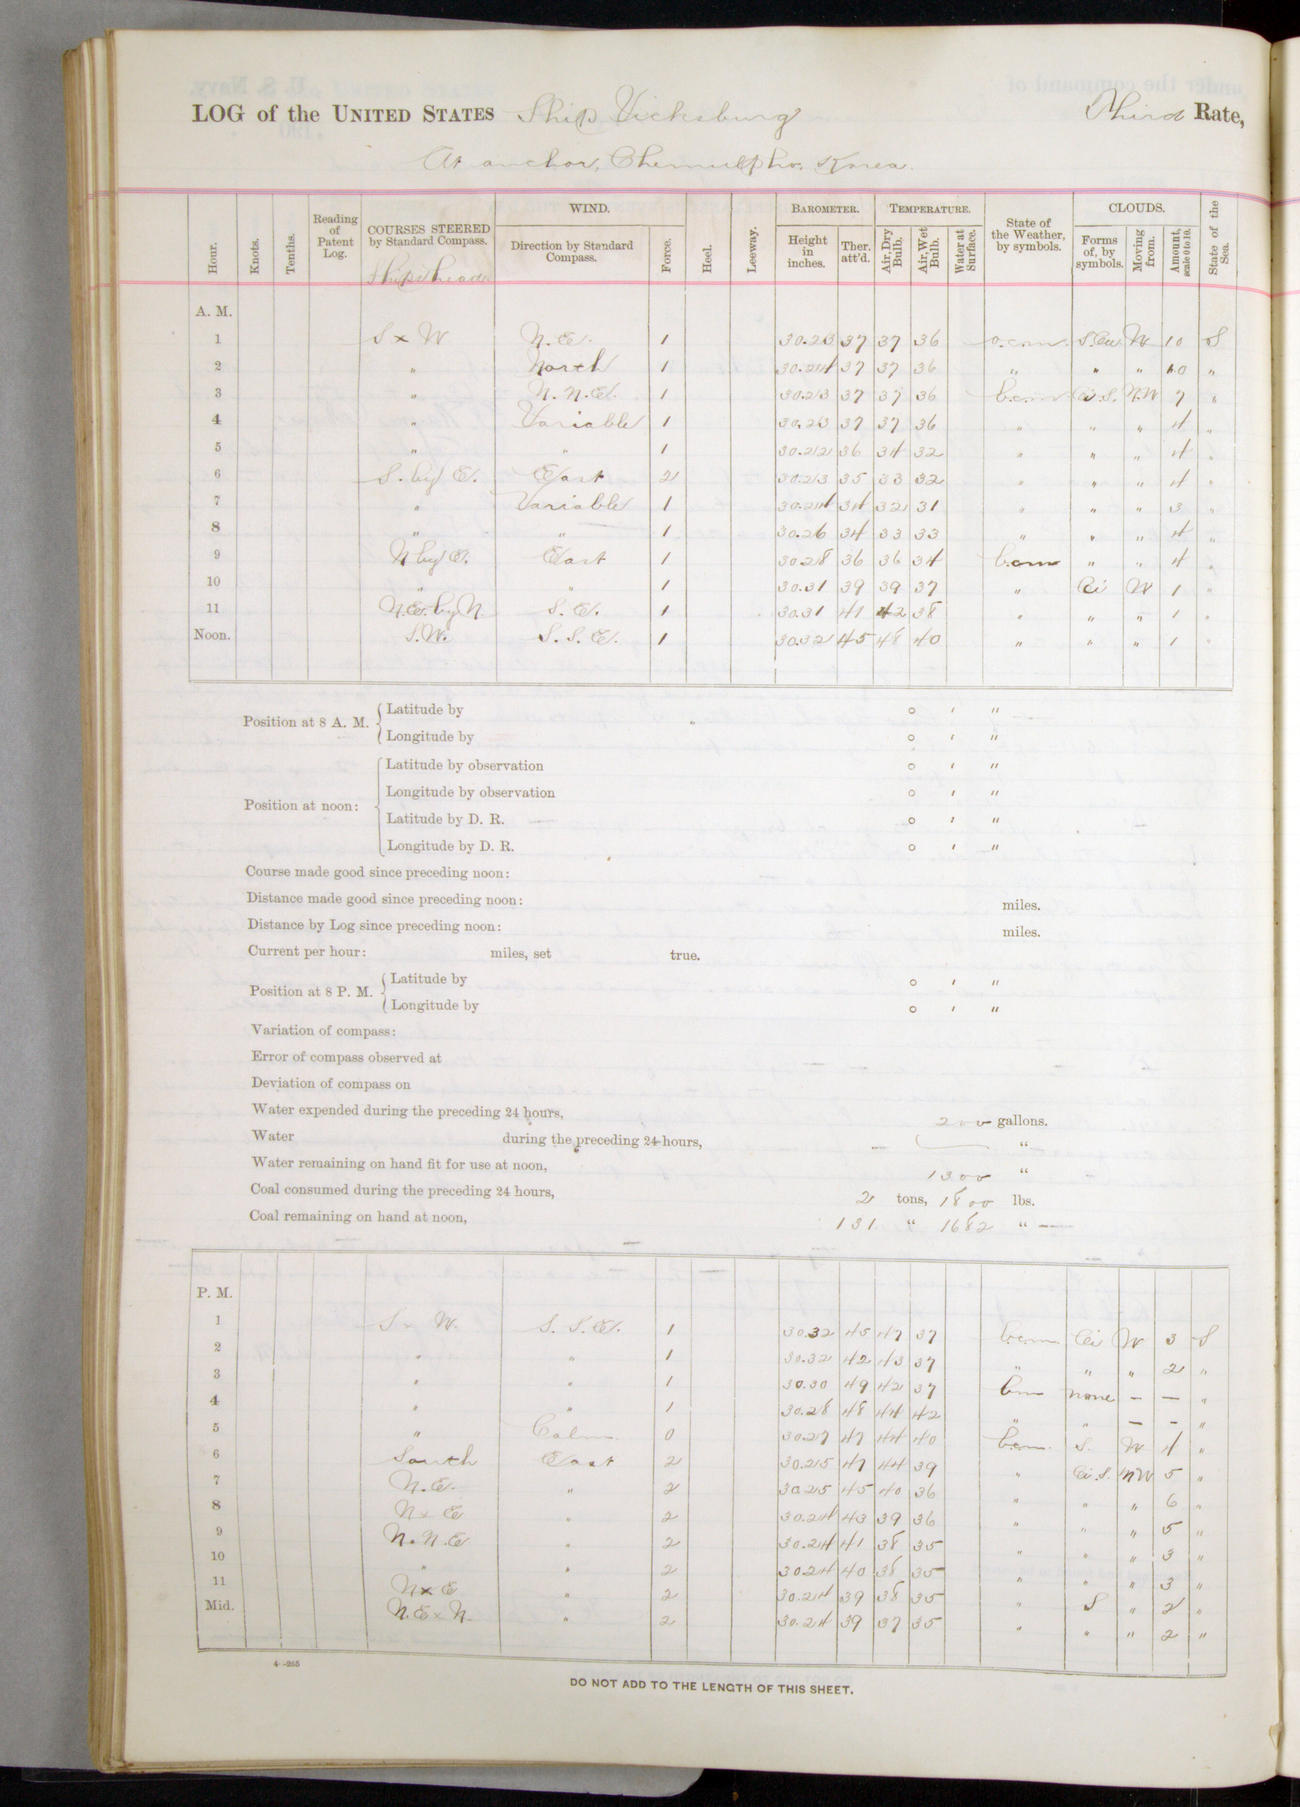 LOG of the UNITED STATES Ship Vicksburg Third Rate,
At anchor, Chemulpho, Korea.
Hour. Knots. Tenths. Reading of Patent Log. COURSES STEERED by Standard Compass. WIND. Direction by Standard Compass. Force. Heel. Leeway. BAROMETER. Height in inches. Ther. att'd. TEMPERATURE. Air, Dry Bulb. Air, Wet Bulb. Water at Surface. State of the Weather, by symbols. CLOUDS. Forms of, by symbols. Moving from. Amount, scale 0 to 10. State of the Sea.
Ship's head
A. M.
1 S x W N.E. 1 30.23 37 37 36 o.c.m. S.Cu W 10 S
2 " North 1 30.24 37 37 36 " " " 10 "
3 " N.N.E. 1 30.23 37 37 36 b.c.m Ci.S. N.W 7 "
4 " Variable 1 30.23 37 37 36 " " " 4 "
5 " " 1 30.22 36 34 32 " " " 4 "
6 S. by E. East 2 30.23 35 33 32 " " " 4 "
7 " Variable 1 30.24 34 32 31 " " " 3 "
8 " " 1 30.26 34 33 33 " " " 4 "
9 N by E. East 1 30.28 36 36 34 b.c.m " " 4 "
10 " " 1 30.31 39 39 37 " Ci W 1 "
11 N.E. by N. S.E. 1 30.31 41 42 38 " " " 1 "
Noon. S.W. S.S.E. 1 30.32 45 48 40 " " " 1 "
Position at 8 A. M. Latitude by ° ' "
Longitude by ° ' "
Position at noon: Latitude by observation ° ' "
Longitude by observation ° ' "
Latitude by D. R. ° ' "
Longitude by D. R. ° ' "
Course made good since preceding noon:
Distance made good since preceding noon: miles.
Distance by Log since preceding noon: miles.
Current per hour: miles, set true.
Position at 8 P. M. Latitude by ° ' "
Longitude by ° ' "
Variation of compass:
Error of compass observed at
Deviation of compass on
Water expended during the preceding 24 hours, 200 gallons.
Water during the preceding 24 hours, — "
Water remaining on hand fit for use at noon, 1300 "
Coal consumed during the preceding 24 hours, 2 tons, 1800 lbs.
Coal remaining on hand at noon, 131 " 1682 "
P. M.
1 S x W. S.S.E. 1 30.32 45 47 37 b.c.m Ci W 3 S
2 " " 1 30.32 42 43 37 " " " 2 "
3 " " 1 30.30 49 42 37 bm none — — "
4 " " 1 30.28 48 44 42 " " — — "
5 " Calm 0 30.27 47 44 40 b.c.m. S. W 4 "
6 South East 2 30.25 47 44 39 " Ci.S. NW 5 "
7 N.E. " 2 30.25 45 40 36 " " " 6 "
8 N x E " 2 30.24 43 39 36 " " " 5 "
9 N.N.E " 2 30.24 41 38 35 " " " 3 "
10 " " 2 30.24 40 38 35 " " " 3 "
11 N x E " 2 30.24 39 38 35 " S " 2 "
Mid. N.E x N. " 2 30.24 39 37 35 " " " 2 "
4—265
DO NOT ADD TO THE LENGTH OF THIS SHEET.